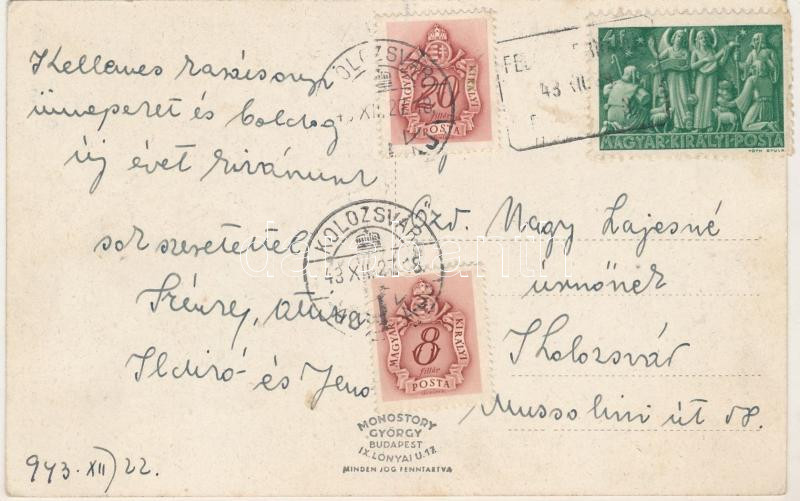 Kellemes karácsonyi
ünnepeket és boldog
új évet kivánunk
sok szeretettel
Ildikó és Jenő
943. XII) 22.
MAGYAR KIRÁLYI
20
fillér
POSTA
KOLOZSVÁR
43 XII. 27. 18
4f
MAGYAR·KIRÁLYI·POSTA
43 XII.
KOLOZSVÁR
43 XII. 27. 18
MAGYAR KIRÁLYI
8
fillér
POSTA
Özv. Nagy Lajosné
úrnőnek
Kolozsvár
Mussolini út 58.
MONOSTORY
GYÖRGY
BUDAPEST
IX. LÓNYAI U. 12
MINDEN JOG FENNTARTVA